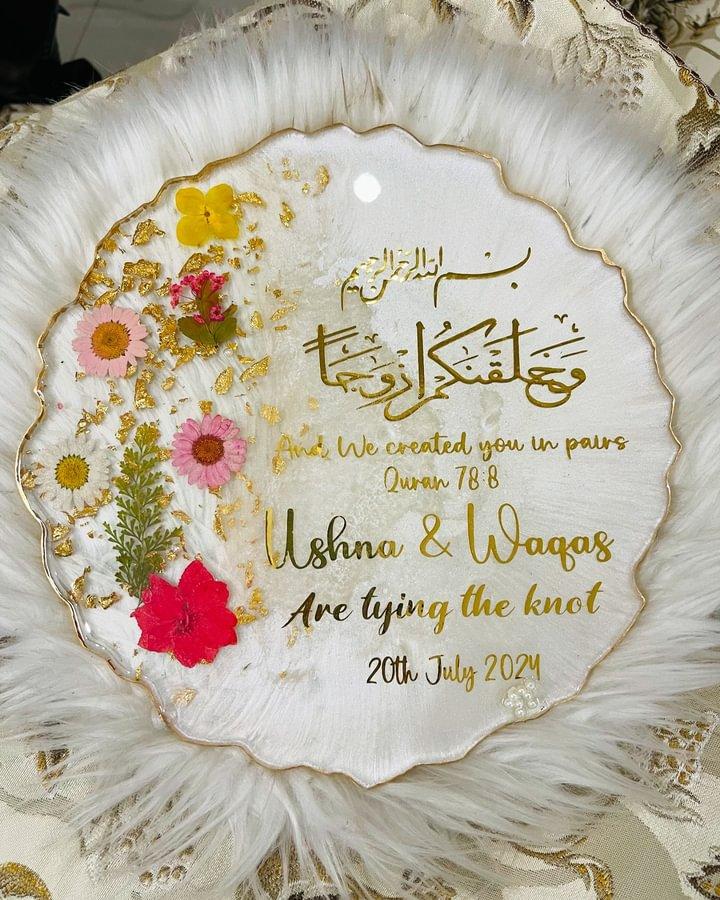 بسم الله الرحمن الرحيم
وَخَلَقْنَكُمْ أَزْوَجًا
And We created you in pairs
Quran 78:8
Ushna & Waqas
Are tying the knot
20th July 2024